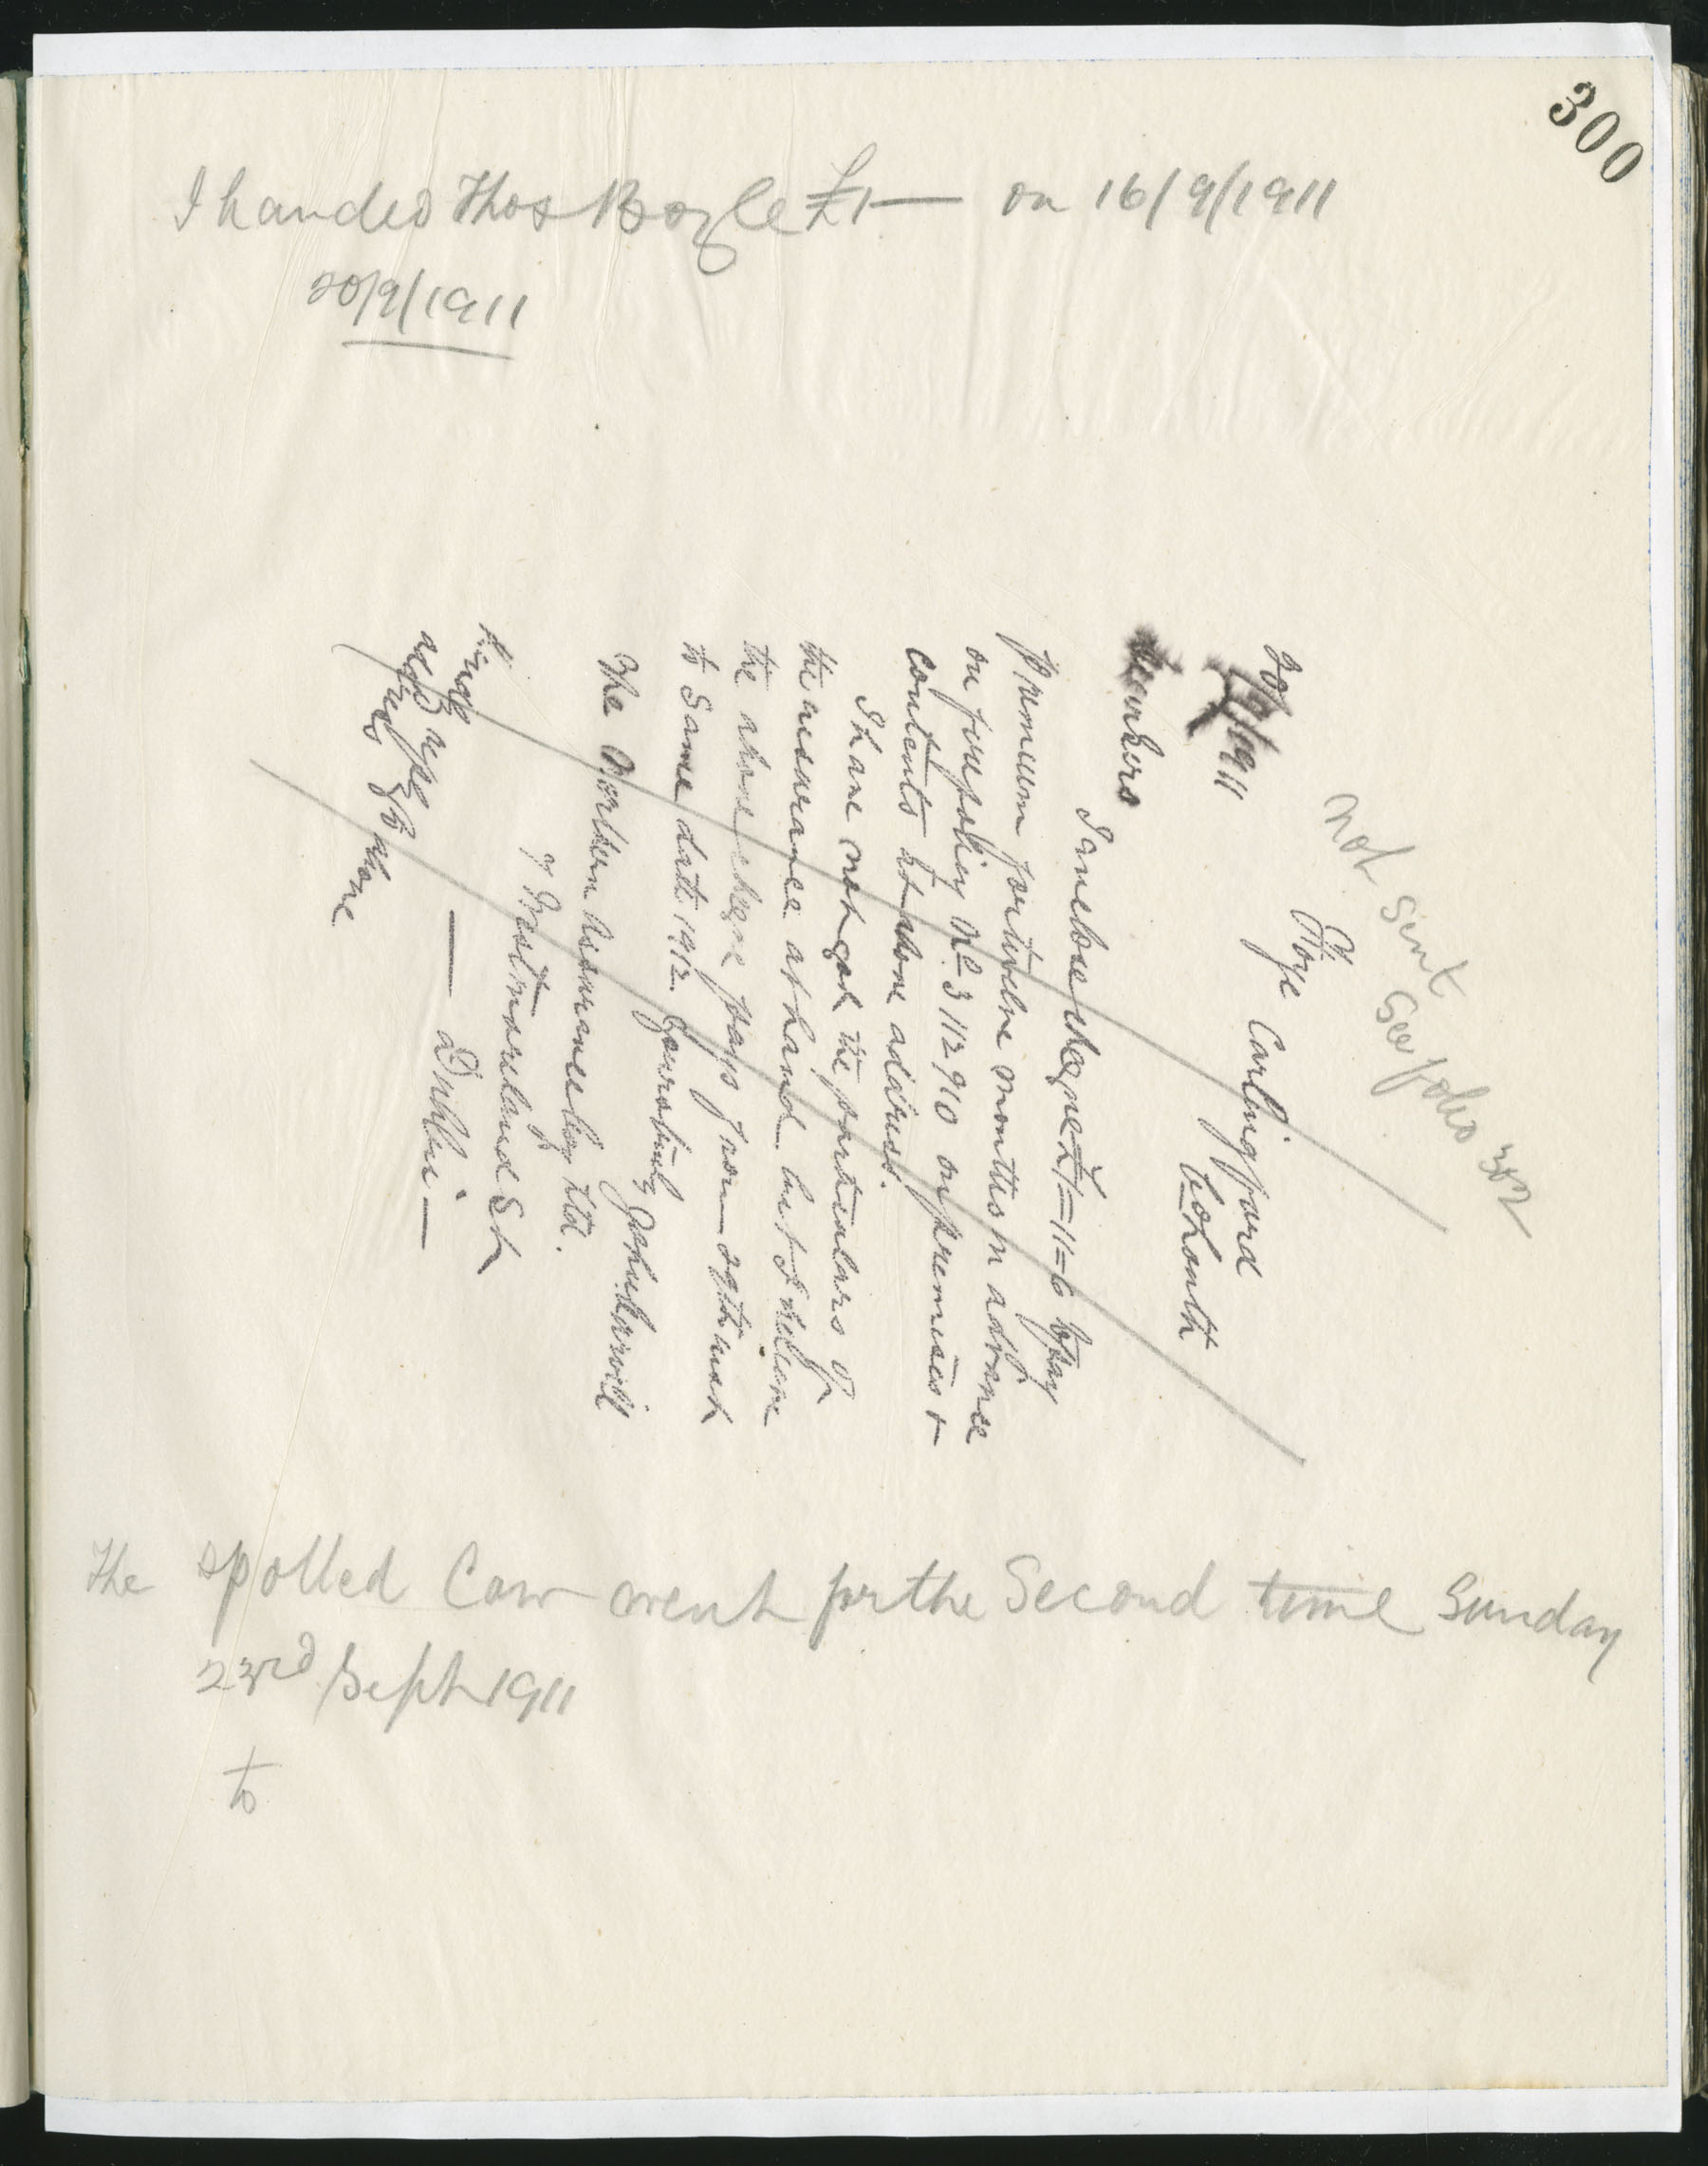 300
I handed Thos Boyle £1 — on 16/9/1911
20/9/1911
not sent
See folio 302
Ffoye Carlingford
20/9/1911 Co Louth
Dear Sirs
I enclose cheque £1=11=6 to pay
premium for twelve months in advance
on fire policy No 3112910 on premises +
contents at above address.
I have not got the particulars of
the insurance at hand but I believe
the above cheque pays from 29th inst
to same date 1912. Yours truly
The Northern Assurance Coy Ltd.
of Westmoreland St
— Dublin —
Kindly
address to above
The spotted Cow went for the Second time Sunday
23rd Sept 1911
to